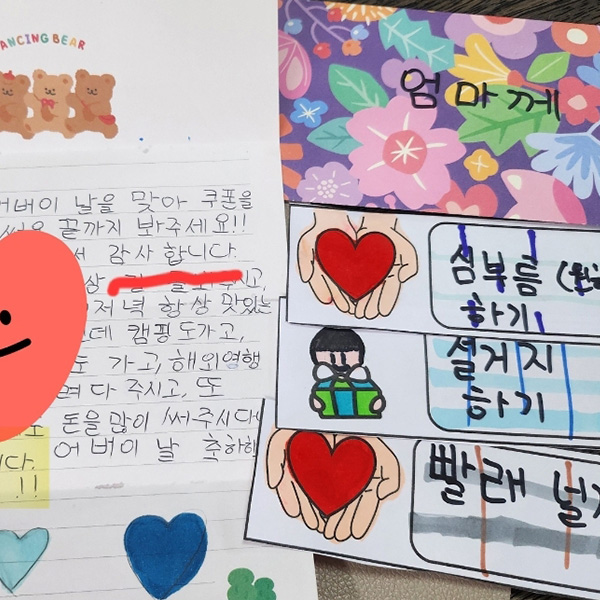 DANCING BEAR
엄마께
어버이 날을 맞아 쿠폰을
끝까지 봐주세요!!
감사합니다.
저녁 항상 맛있는
데 캠핑도가고,
가고, 해외영행
려다 주시고, 또
돈을많이 써주시다니
어버이 날 축하해
다.
!!
심부름
하기
설거지
하기
빨래 널